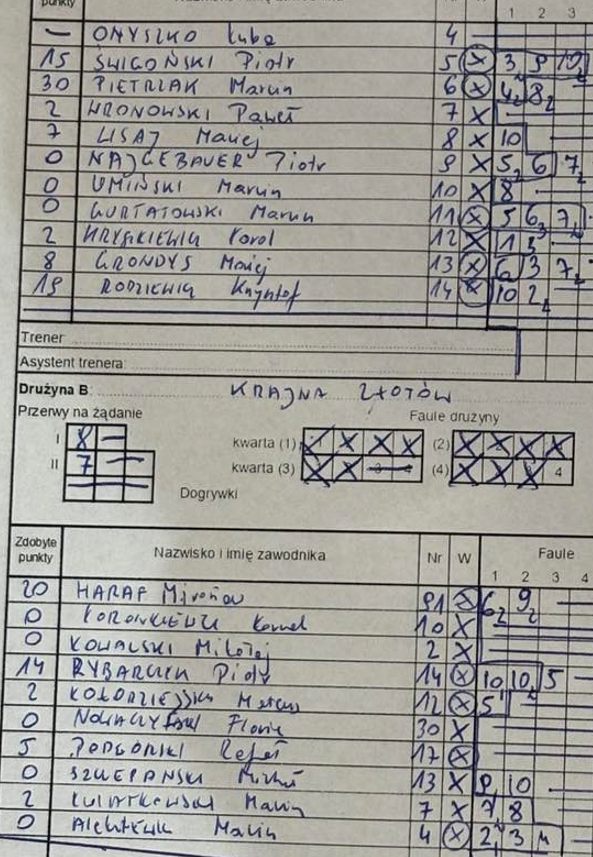 punkty
Nr
1 2 3
— ONYSZKO Kuba 4
15 ŚWIGOŃSKI Piotr 5 X 3
30 PIETRZAK Marcin 6 X 4 2 8 2
2 WRONOWSKI Paweł 7 X
7 LISAJ Maciej 8 X 10
0 NAJGEBAUER Piotr 9 X 5 2 6 7 2
0 UMIŃSKI Marcin 10 X 8
0 Marcin 11 X 5 6 3 7 2
2 Karol 12 X
8 GRONDYS Maciej 13 X 6 3 7 2
19 Krzysztof 14 X 10 2
Trener
Asystent trenera:
Drużyna B: KRAJNA ZŁOTÓW
Przerwy na żądanie Faule drużyny
I 8 — kwarta (1) X X X X (2) X X X X
II 7 — kwarta (3) X X 3 4 (4) X X X 4
Dogrywki
Zdobyte punkty Nazwisko i imię zawodnika Nr W Faule
1 2 3 4
20 HARAF Mirosław 91 X 6 2 9 2
0 Kornel 10 X
0 KOWALSKI Mikołaj 2 X
14 Piotr 14 X 10 10 5
2 12 X 5
0 30 X
5 PODGÓRSKI Rafał 17 X
0 SZCZEPAŃSKI Michał 13 X 9 10
2 KWIATKOWSKI Marcin 7 X 7 8
0 Marcin 4 X 2 3 4